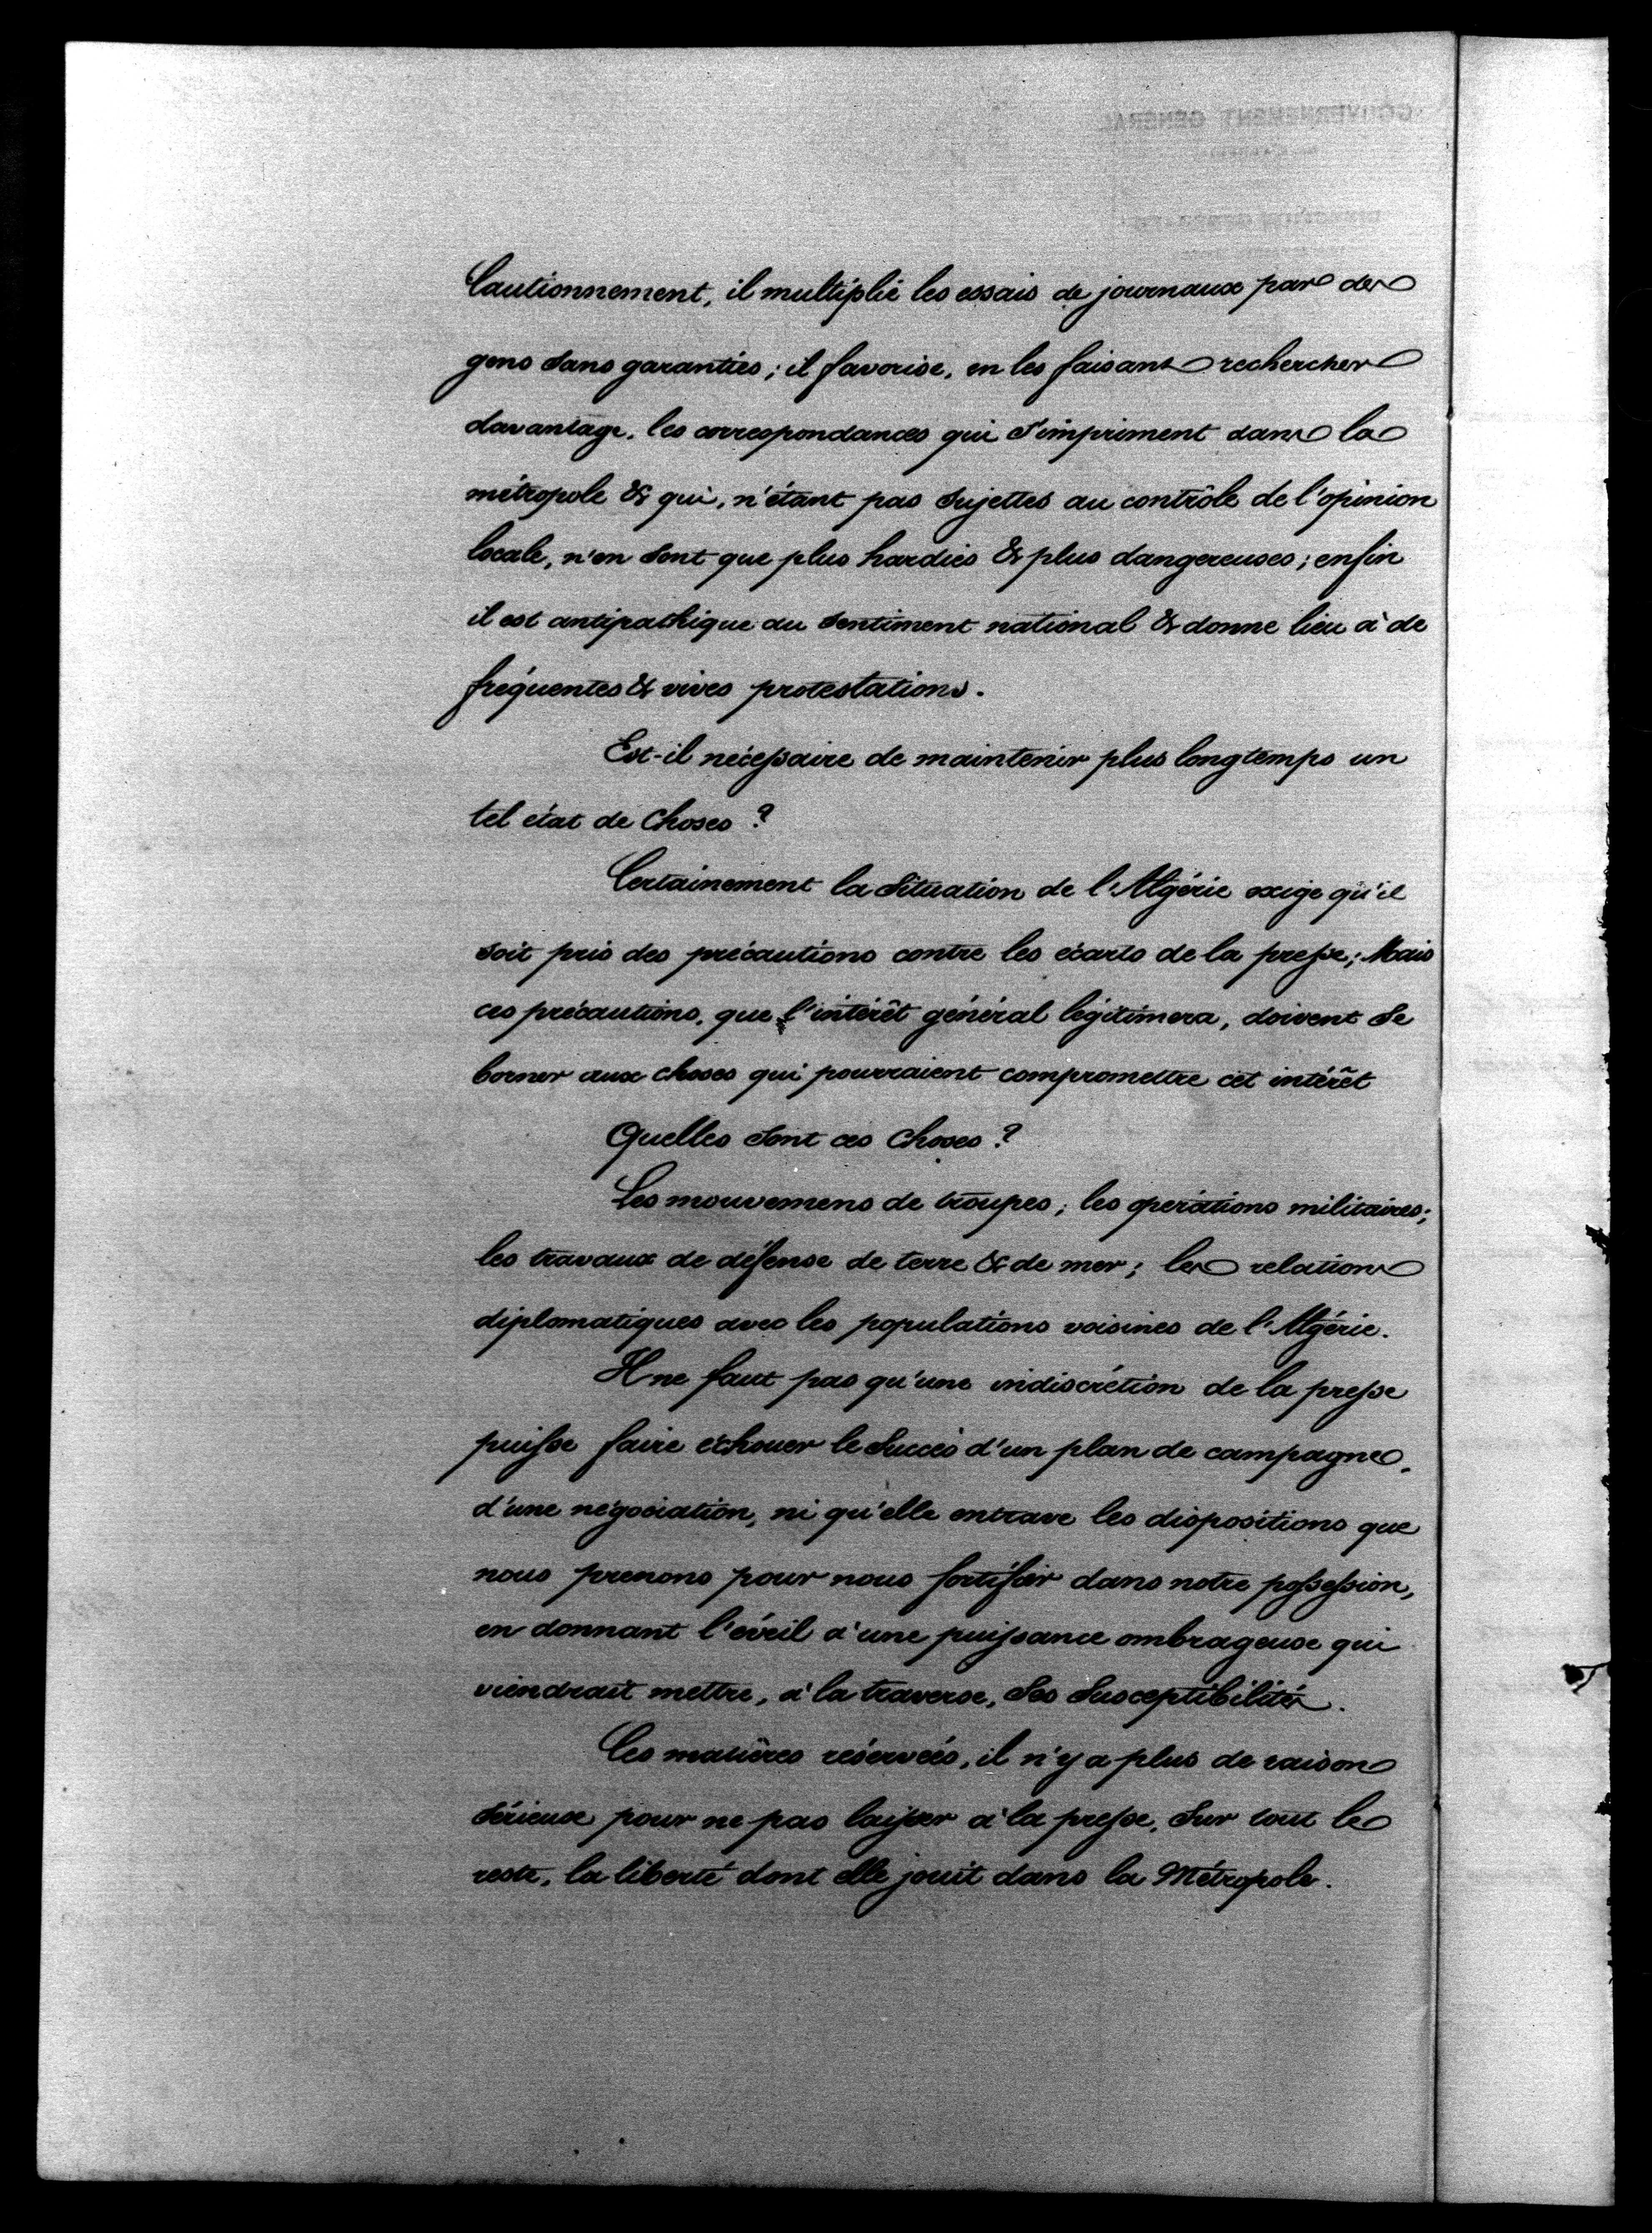 Cautionnement, il multiplie les essais de journaux par des
gens sans garanties ; il favorise, en les faisant rechercher
davantage, les correspondances qui s'impriment dans la
métropole & qui, n'étant pas sujettes au contrôle de l'opinion
locale, n'en sont que plus hardies & plus dangereuses ; enfin
il est antipathique au sentiment national & donne lieu à de
fréquentes & vives protestations.
Est-il nécessaire de maintenir plus longtemps un
tel état de choses ?
Certainement la situation de l'Algérie exige qu'il
soit pris des précautions contre les écarts de la presse ; Mais
ces précautions, que l'intérêt général légitimera, doivent se
borner aux choses qui pourraient compromettre cet intérêt
Quelles sont ces choses ?
Les mouvemens de troupes ; les opérations militaires ;
les travaux de défense de terre & de mer ; les relations
diplomatiques avec les populations voisines de l'Algérie.
Il ne faut pas qu'une indiscrétion de la presse
puisse faire échouer le succès d'un plan de campagne,
d'une négociation, ni qu'elle entrave les dispositions que
nous prenons pour nous fortifier dans notre possession,
en donnant l'éveil à une puissance ombrageuse qui
viendrait mettre, à la traverse, ses susceptibilités.
Ces matières réservées, il n'y a plus de raison
sérieuse pour ne pas laisser à la presse, sur tout le
reste, la liberté dont elle jouit dans la Métropole.